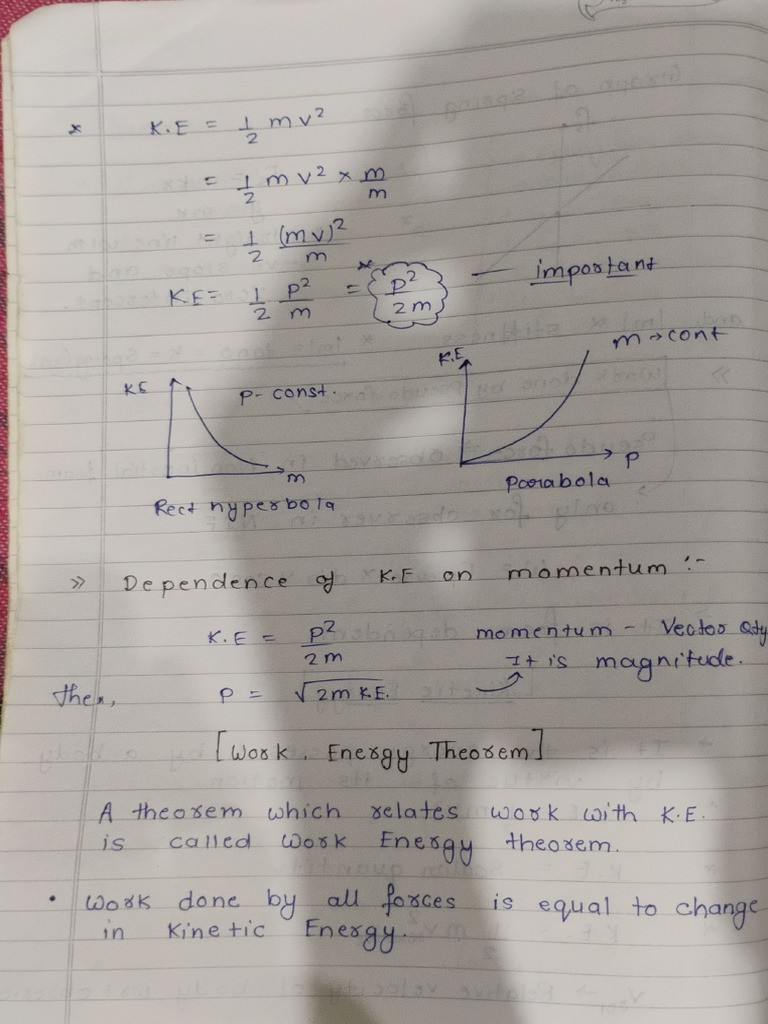 * K.E = 1/2 mv²
= 1/2 mv² × m/m
= 1/2 (mv)²/m
K.E = 1/2 p²/m = * p²/2m — important
KE p - const. m
Rect hyperbola
K.E m → cont p
Parabola
» Dependence of K.E on momentum :-
K.E = p²/2m momentum - Vector Qty
It is magnitude.
then, p = √2m K.E.
[Work. Energy Theorem]
A theorem which relates work with K.E.
is called Work Energy theorem.
• Work done by all forces is equal to change
in Kinetic Energy.